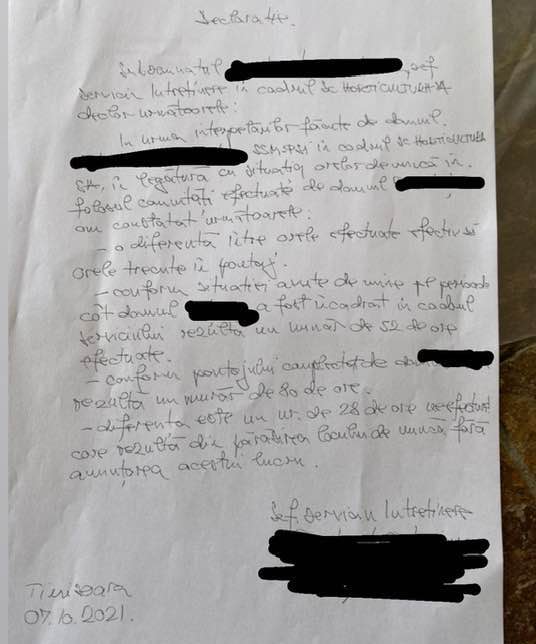 Declaratie.
Subsemnatul , șef
serviciu Intreținere în cadrul SC HORTICULTURA SA
declar următoarele:
In urma interpelărilor făcute de domnul.
SSMPSI în cadrul SC HORTICULTURA
SA, în legătură cu situația orelor de muncă în
folosul comunității efectuate de domnul
am constatat următoarele:
- o diferență între orele efectuate efectiv și
orele trecute în pontaj.
- conform situației avute de mine pe perioada
cât domnul a fost încadrat în cadrul
serviciului rezultă un număr de 52 de ore
efectuate.
- conform pontajului completat de
rezultă un număr de 80 de ore.
- diferența este un nr. de 28 de ore neefectuate
care rezultă din părăsirea locului de muncă fără
anunțarea acestui lucru.
Șef. serviciu Intreținere
Timisoara
07.10.2021.